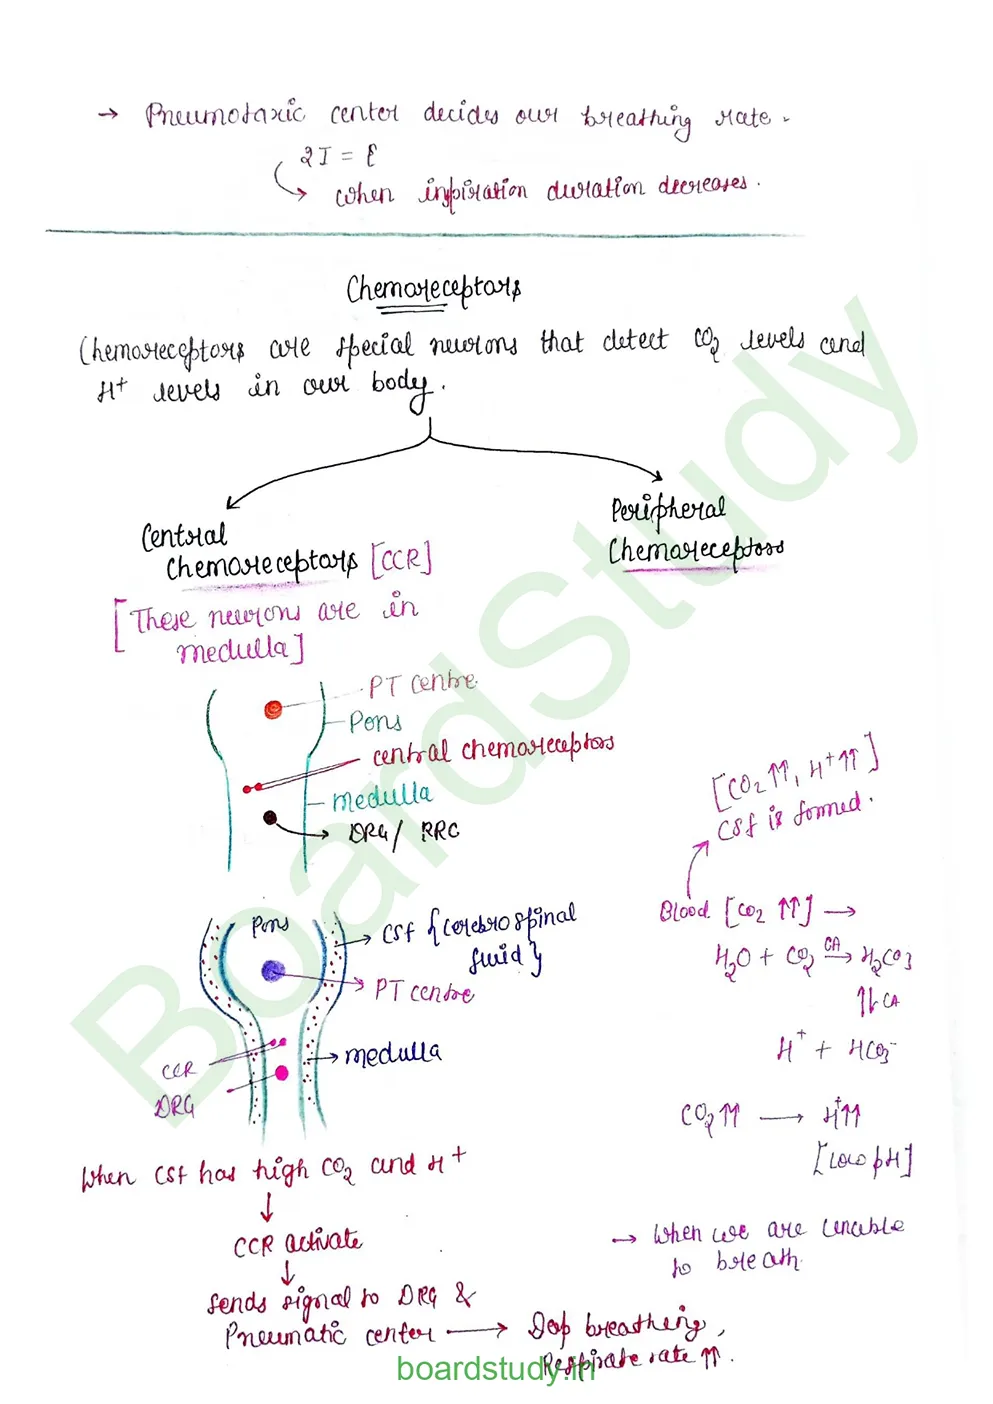 → Pneumotaxic center decides our breathing rate.
2I = E
→ when inspiration duration decreases.
Chemoreceptors
Chemoreceptors are special neurons that detect CO2 levels and
H+ levels in our body.
Central
Chemoreceptors [CCR]
[These neurons are in
medulla]
Peripheral
Chemoreceptors
PT centre
Pons
central chemoreceptors
medulla
DRG/ RRC
[CO2 ↑↑, H+ ↑↑]
CSf is formed.
Blood [CO2 ↑↑] →
H2O + CO2 CA→ H2CO3
⇅ CA
H+ + HCO3-
CO2 ↑↑ → H+ ↑↑
[Low pH]
Pons
CSf {Cerebrospinal
fluid}
PT centre
medulla
CCR
DRG
When CSf has high CO2 and H+
↓
CCR activate
↓
Sends signal to DRG &
Pneumatic center → Deep breathing,
Respirate rate ↑↑.
→ When we are unable
to breath.
BoardStudy
boardstudy.in